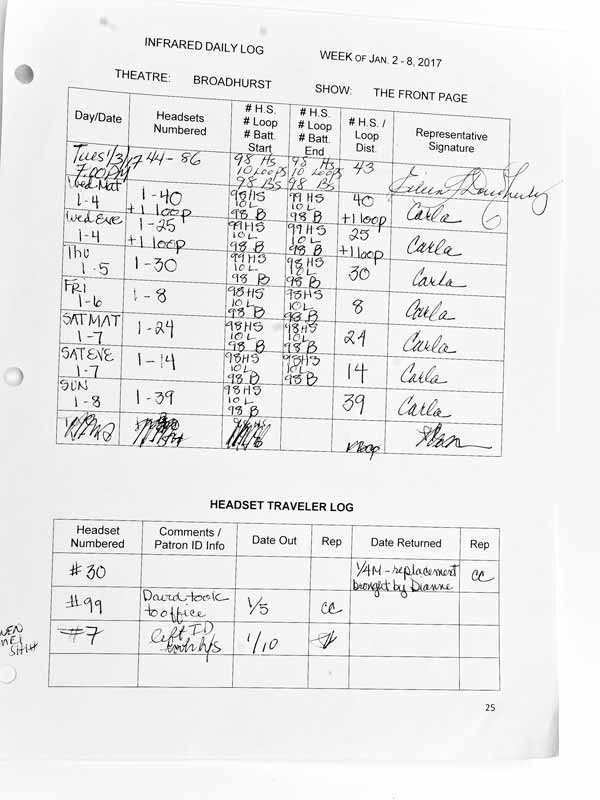 INFRARED DAILY LOG WEEK OF JAN. 2 - 8, 2017
THEATRE: BROADHURST SHOW: THE FRONT PAGE
Day/Date Headsets Numbered # H.S. # Loop # Batt. Start # H.S. # Loop # Batt. End # H.S. / Loop Dist. Representative Signature
Tues 1/3/17 7:00PM 44-86 98 HS 10 Loops 98 Bs 98 HS 10 Loops 98 Bs 43
Wed Mat 1-4 1-40 +1 loop 98HS 10L 98 B 99HS 10L 98 B 40 +1 loop Carla
Wed Eve 1-4 1-25 +1 loop 99HS 10L 98 B 99HS 10L 98 B 25 +1 loop Carla
THU 1-5 1-30 99HS 10L 98 B 98HS 98 B 30 Carla
FRI 1-6 1-8 98HS 10L 98 B 98HS 10L 98 B 8 Carla
SAT MAT 1-7 1-24 98HS 10L 98 B 98HS 10L 98 B 24 Carla
SAT EVE 1-7 1-14 98HS 10L 98 B 98HS 10L 98 B 14 Carla
SUN 1-8 1-39 98HS 10L 98 B 39 Carla
loop
HEADSET TRAVELER LOG
Headset Numbered Comments / Patron ID Info Date Out Rep Date Returned Rep
#30 1/4M - replacement brought by Dianne CC
#99 David took to office 1/5 CC
#7 left ID 1/10
SHIH
25